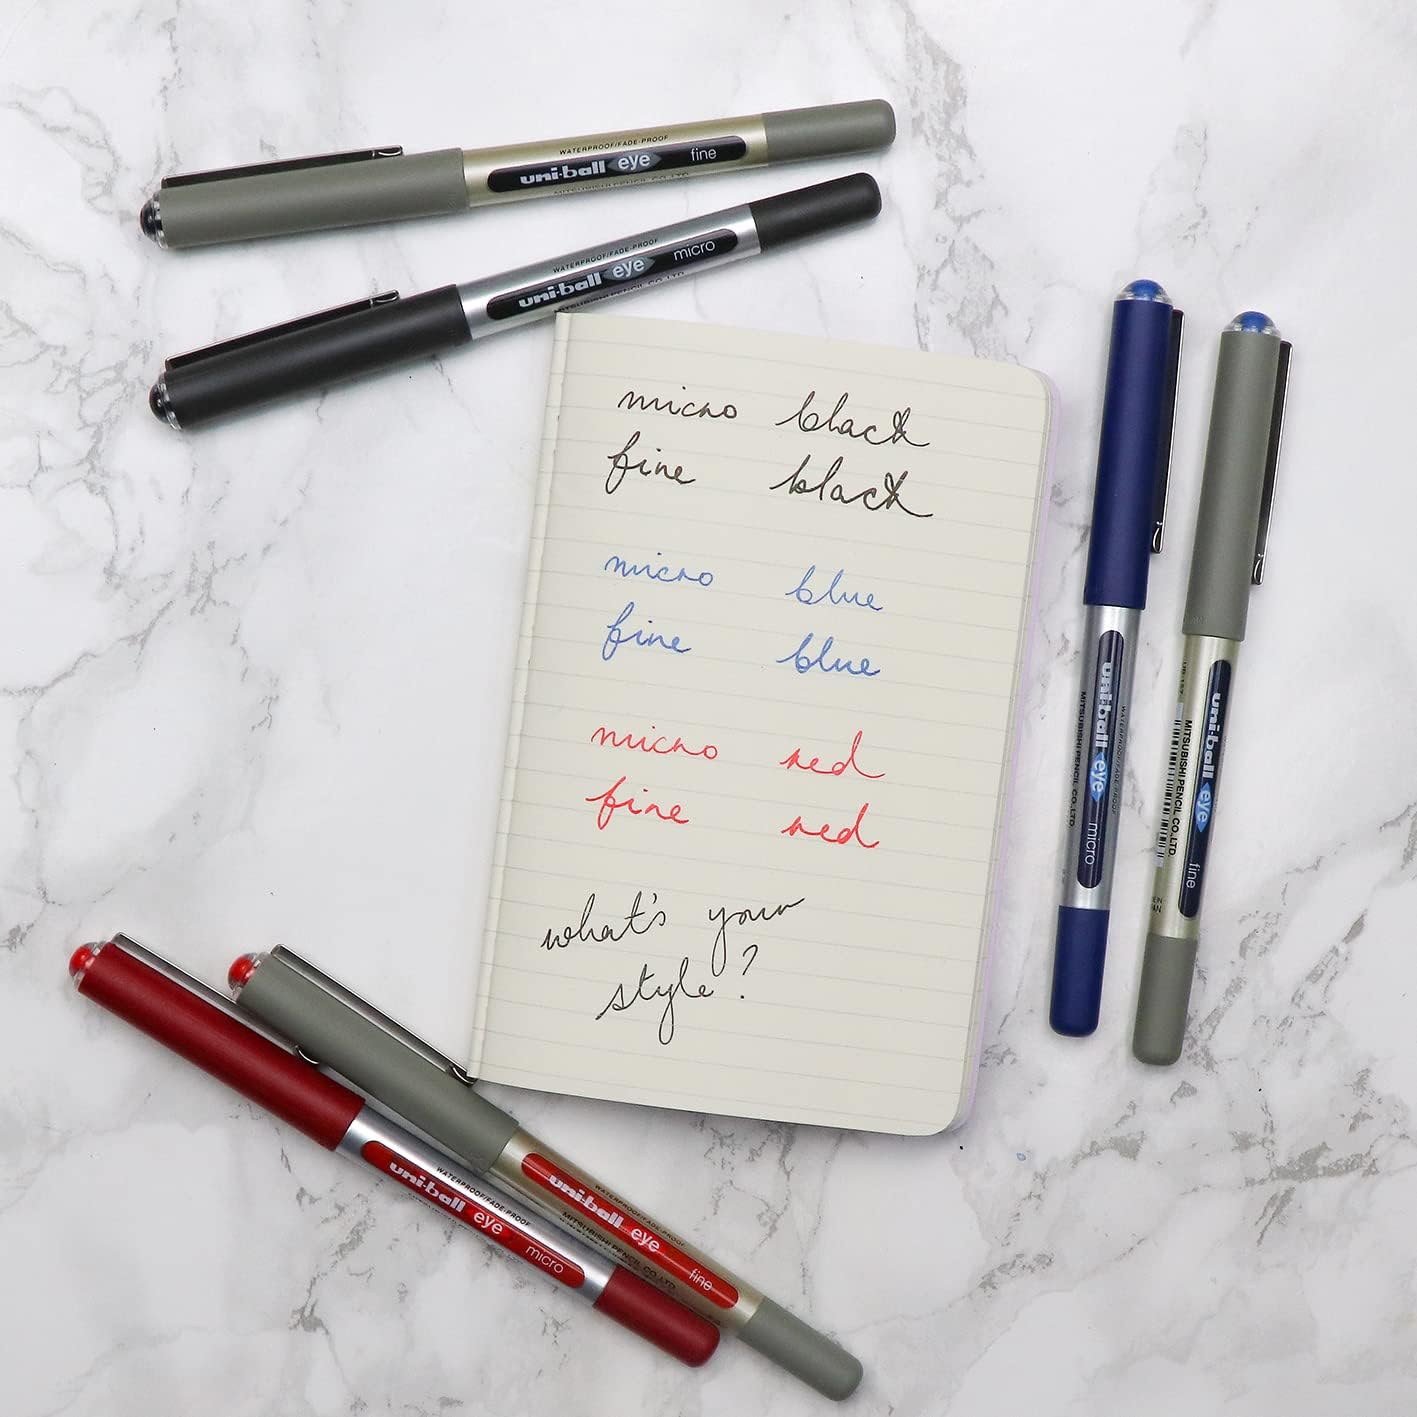 WATERPROOF/FADE-PROOF
uni-ball eye fine
MITSUBISHI PENCIL CO.LTD
WATERPROOF/FADE-PROOF
uni-ball eye micro
MITSUBISHI PENCIL CO.LTD
micro black
fine black
micro blue
fine blue
micro red
fine red
what's your
style?
WATERPROOF/FADE-PROOF
uni-ball eye micro
MITSUBISHI PENCIL CO.,LTD.
UB-157
uni-ball eye fine
MITSUBISHI PENCIL CO.,LTD.
WATERPROOF/FADE-PROOF
uni-ball eye micro
WATERPROOF/FADE-PROOF
uni-ball eye fine
MITSUBISHI PENCIL CO.,LTD.